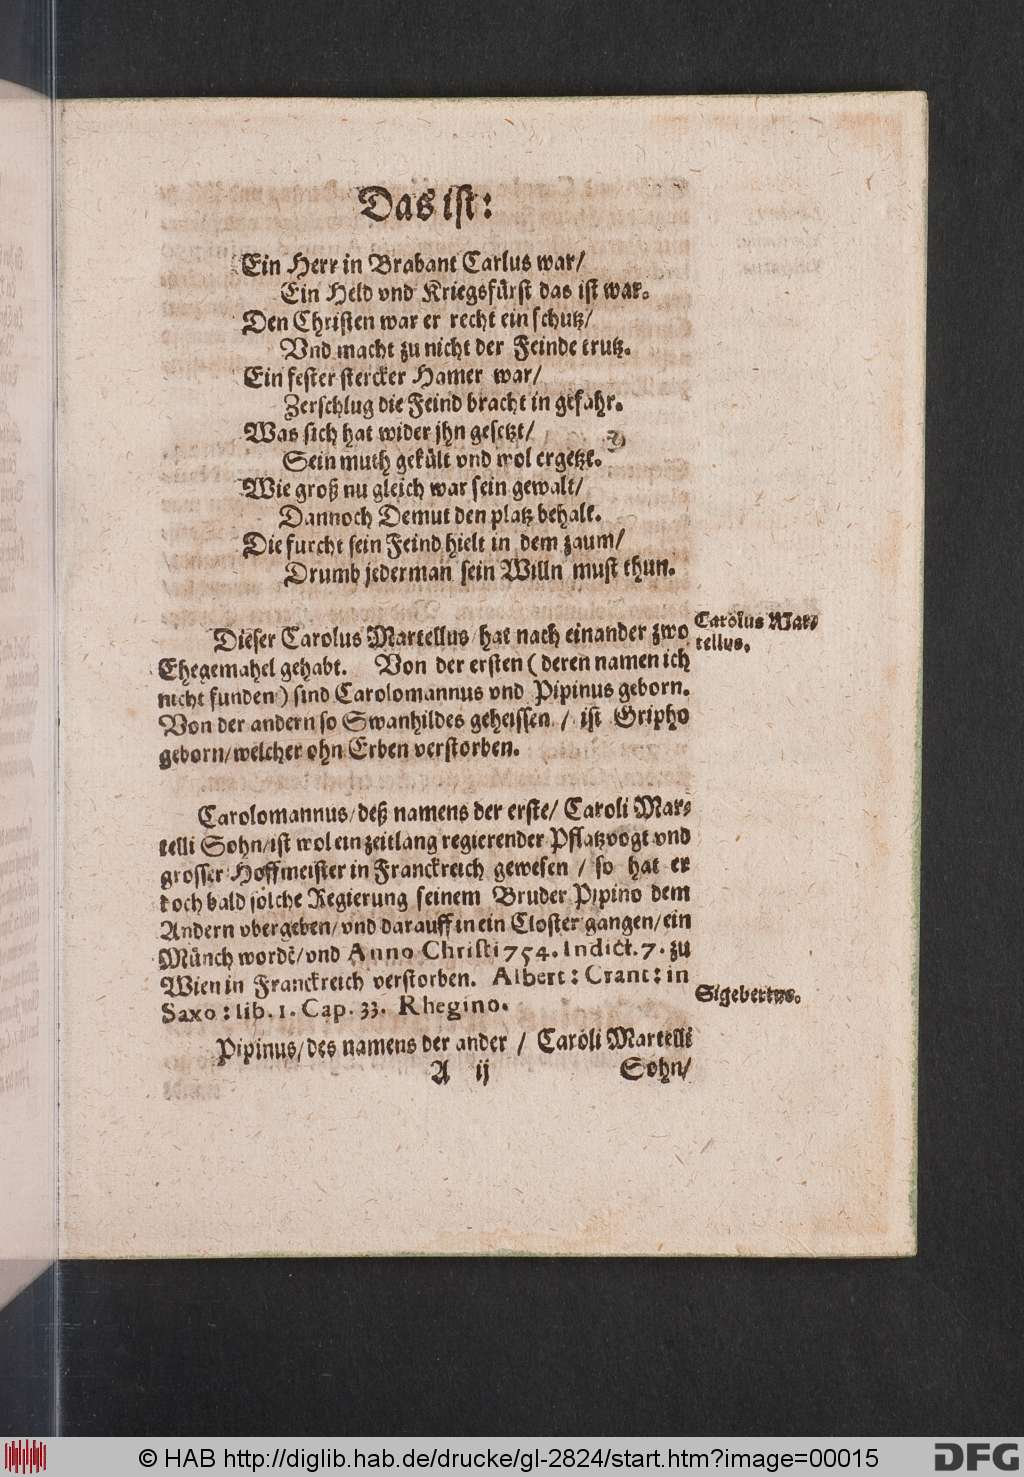 Das ist:
Ein Herr in Brabant Carlus war/
Ein Held vnd Kriegsfürst das ist war.
Den Christen war er recht ein schutz/
Vnd macht zu nicht der Feinde trutz.
Ein fester stercker Hamer war/
Zerschlug die Feind bracht in gefahr.
Was sich hat wider jhn gesetzt/
Sein muth gekült vnd wol ergetzt.
Wie groß nu gleich war sein gewalt/
Dannoch Demut den platz behalt.
Die furcht sein Feind hielt in dem zaum/
Drumb jederman sein Willn must thun.
Dieser Carolus Martellus hat nach einander zwo
Carolus Mar⸗
tellus.
Ehegemahel gehabt. Von der ersten (deren namen ich
nicht funden) sind Carolomannus vnd Pipinus geborn.
Von der andern so Swanhildes geheissen / ist Gripho
geborn/welcher ohn Erben verstorben.
Carolomannus/deß namens der erste/ Caroli Mar⸗
telli Sohn/ist wol ein zeitlang regierender Pflatzvogt vnd
grosser Hoffmeister in Franckreich gewesen / so hat er
doch bald solche Regierung seinem Bruder Pipino dem
Andern vbergeben/vnd darauff in ein Closter gangen/ein
Münch wordē/vnd Anno Christi 754. Indict. 7. zu
Wien in Franckreich verstorben. Albert: Crant: in
Sigebertus.
Saxo: lib. 1. Cap. 33. Rhegino.
Pipinus/des namens der ander / Caroli Martelli
A ij Sohn/
© HAB http://diglib.hab.de/drucke/gl-2824/start.htm?image=00015
DFG